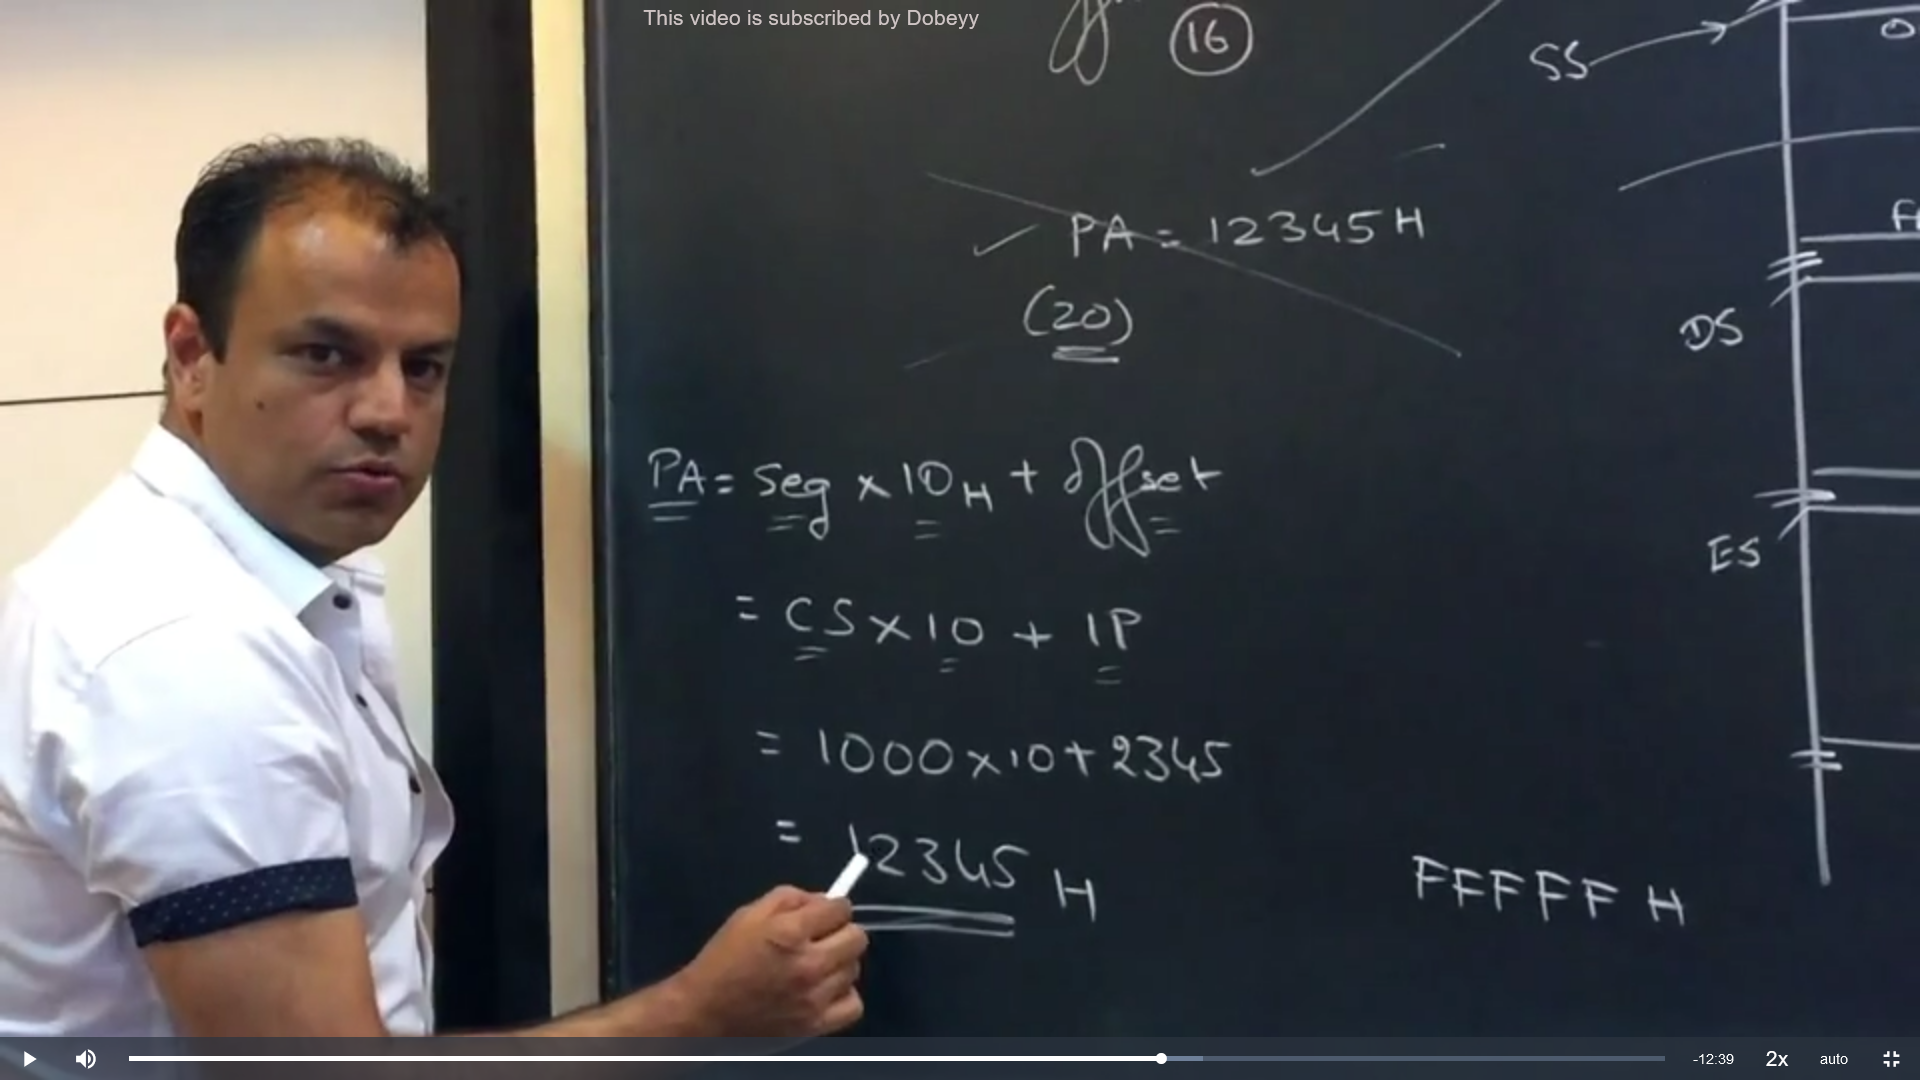 This video is subscribed by Dobeyy
16
SS
PA = 12345 H
(20)
DS
PA = seg × 10H + offset
ES
= CS × 10 + IP
= 1000 × 10 + 2345
= 12345 H
FFFFF H
-12:39
2x
auto